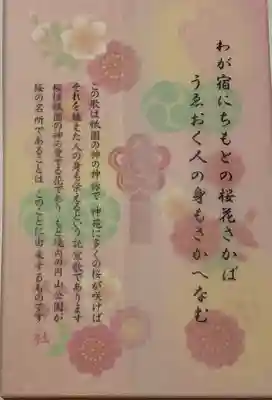 わが宿にちもとの桜花さかば
うゑおく人の身もさかへなむ
この歌は祇園の神の神詠で 神苑に多くの桜が咲けば
それを植えた人の身も栄えるという 託宣歌であります
桜は祇園の神の愛でる花であり もと境内の円山公園が
桜の名所であることは このことに由来するものです
社